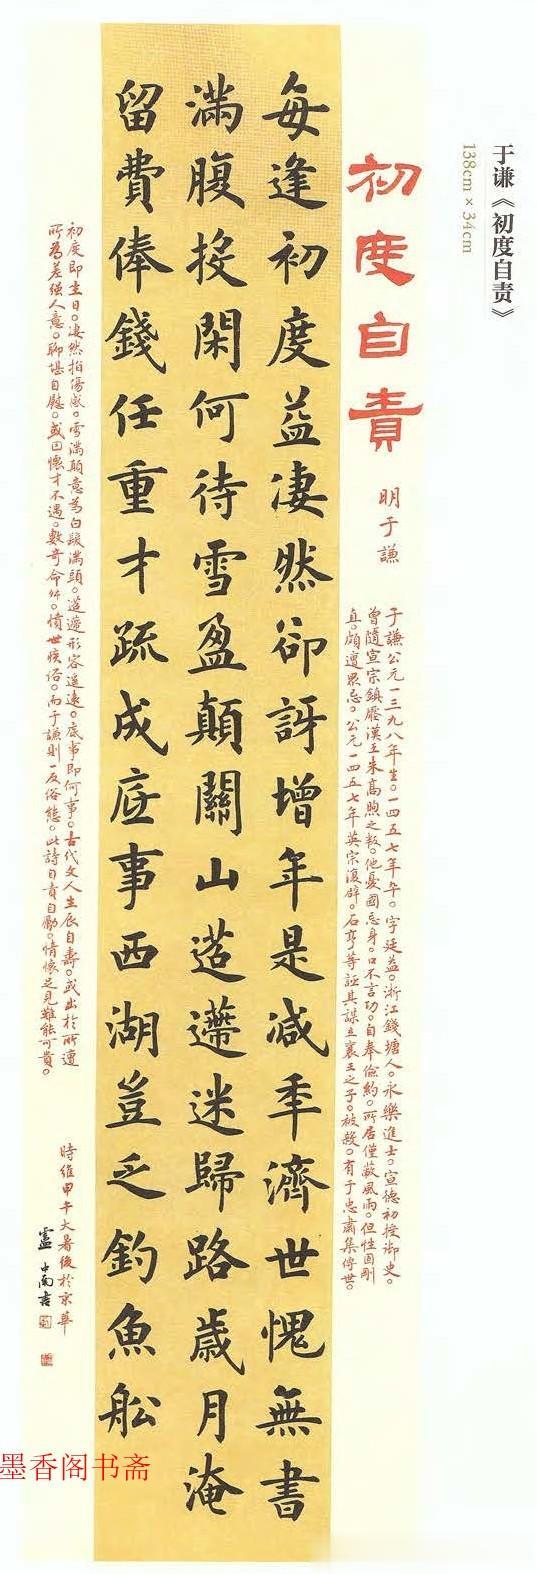 于谦《初度自责》
138cm×34cm
初度自責
明于謙
于謙公元一三九八年生。一四五七年卒。字廷益。浙江錢塘人。永樂進士。宣德初授御史。
曾隨宣宗鎮壓漢王朱高煦之叛。他憂國忘身。口不言功。自奉儉約。所居僅蔽風雨。但性固剛
直。頗遭眾忌。公元一四五七年英宗復辟。石亨等誣其謀立襄王之子。被殺。有于忠肅集傳世。
每逢初度益淒然卻訝增年是減年濟世愧無書
滿腹投閑何待雪盈顛關山迢遰迷歸路歲月淹
留費俸錢任重才疏成底事西湖豈乏釣魚船
初度即生日。淒然拍傷感。雪滿顛意為白髮滿頭。迢遰形容遥遠。底事即何事。古代文人生辰自壽。或出於所遭
所為差强人意。聊堪自慰。或因懷才不遇。數奇命舛。憤世疾俗。而于謙則一反俗態。此詩自責自勵。情懷足見難能可貴。
時維甲午大暑後於京華
盧中南書
墨香阁书斋